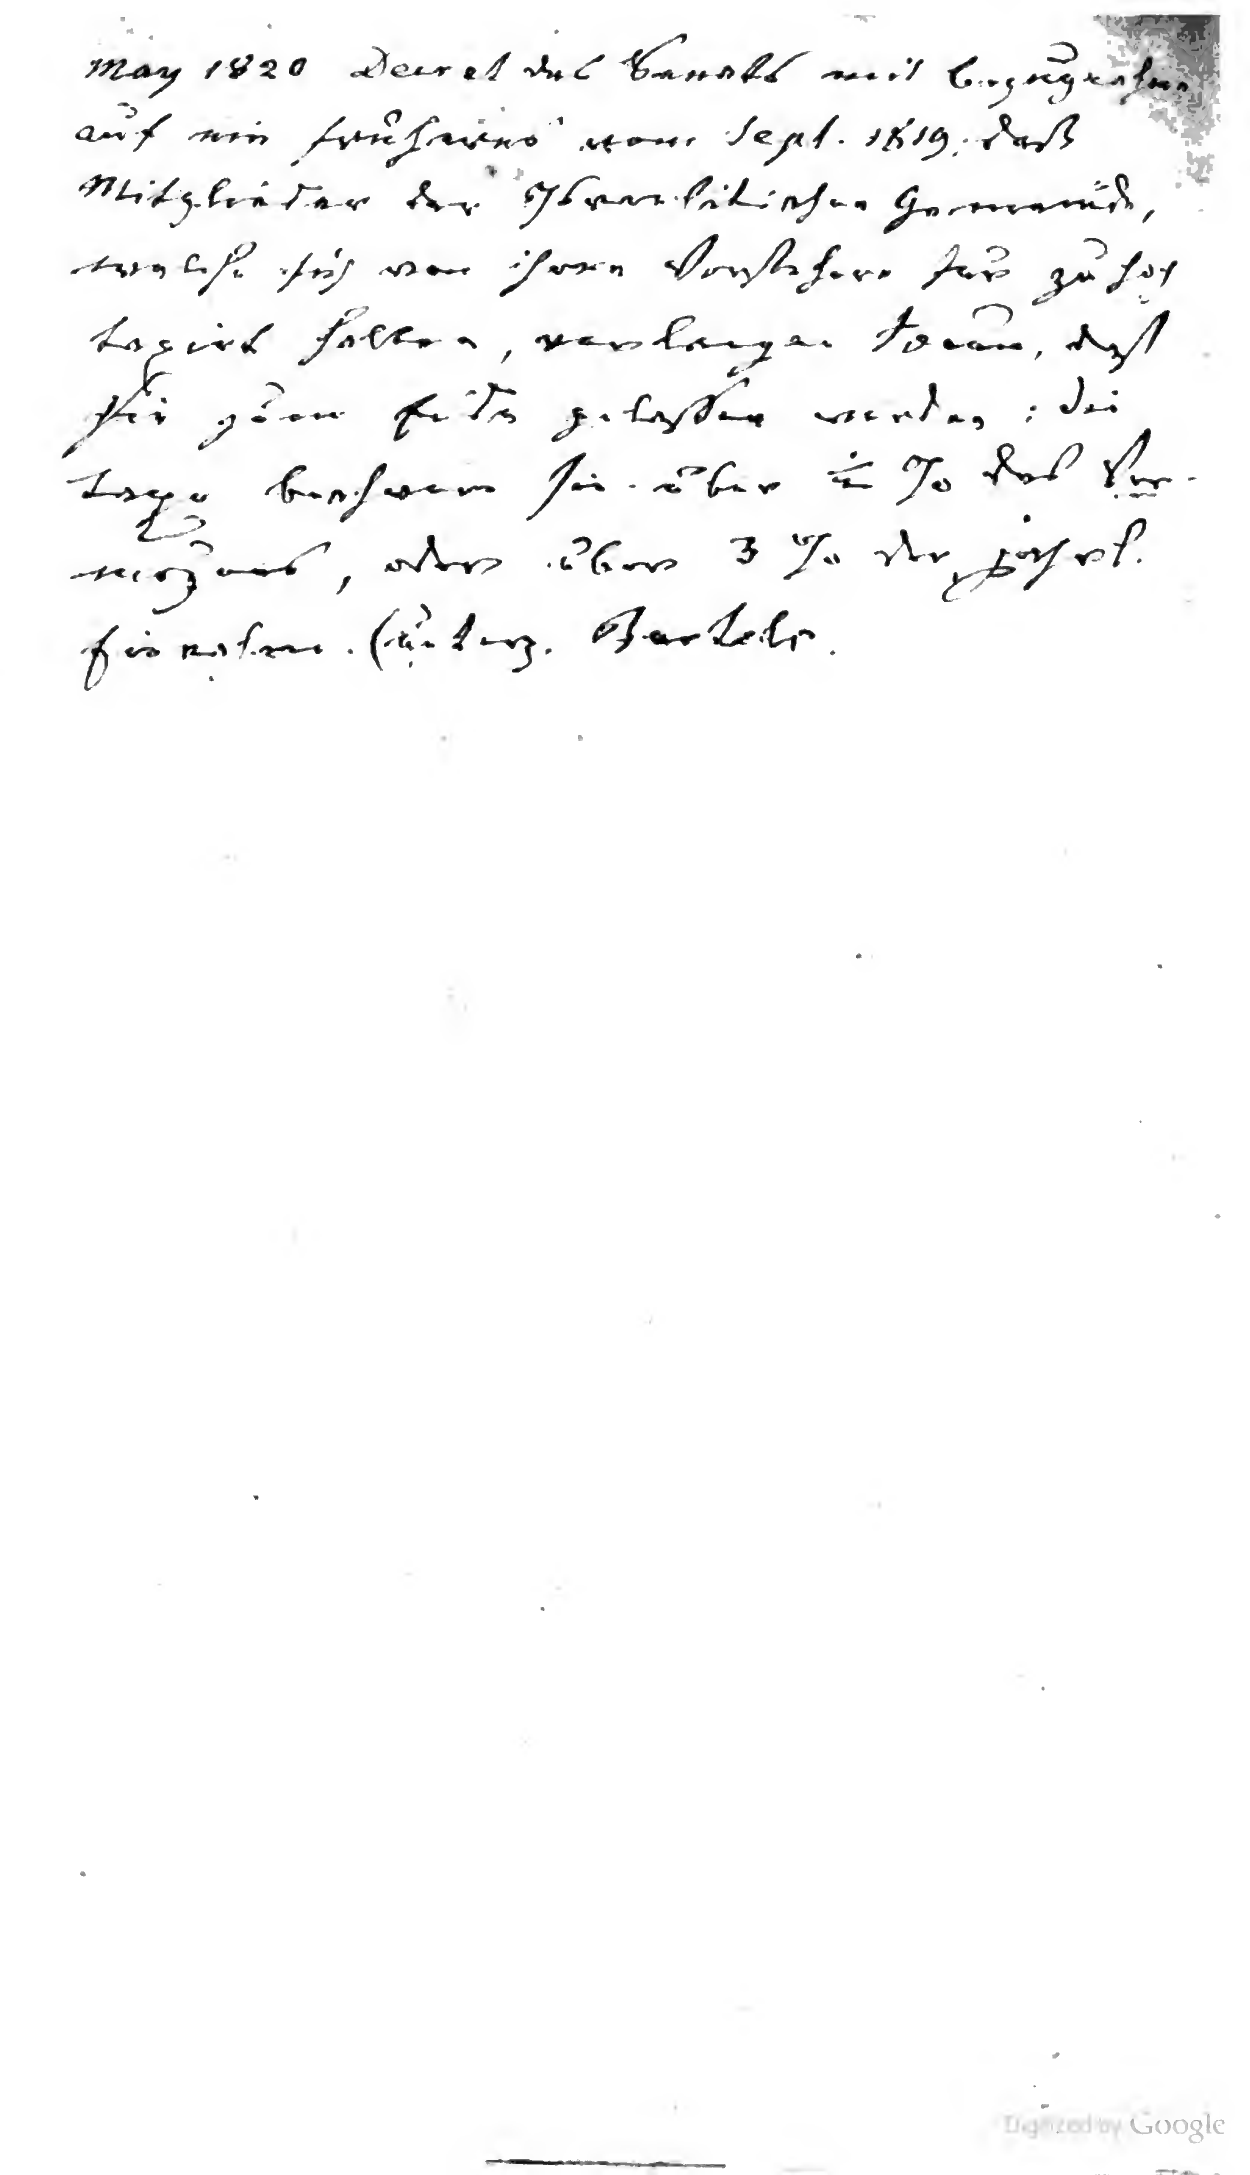 May 1820 Decret des Senats mit Bezugnahme
auf ein früheres vom Sept. 1819: daß
Mitglieder der Israelitischen Gemeinde,
welche sich von ihren Vorstehern für zu hoch
taxirt halten, verlangen können, daß
sie zum Eide gelassen werden: die
taxe beschwere sie über ½ % des Ver-
mögens, oder über 3 % der jährl.
Einnahme. (unterz. Bartels.
Digitized by Google